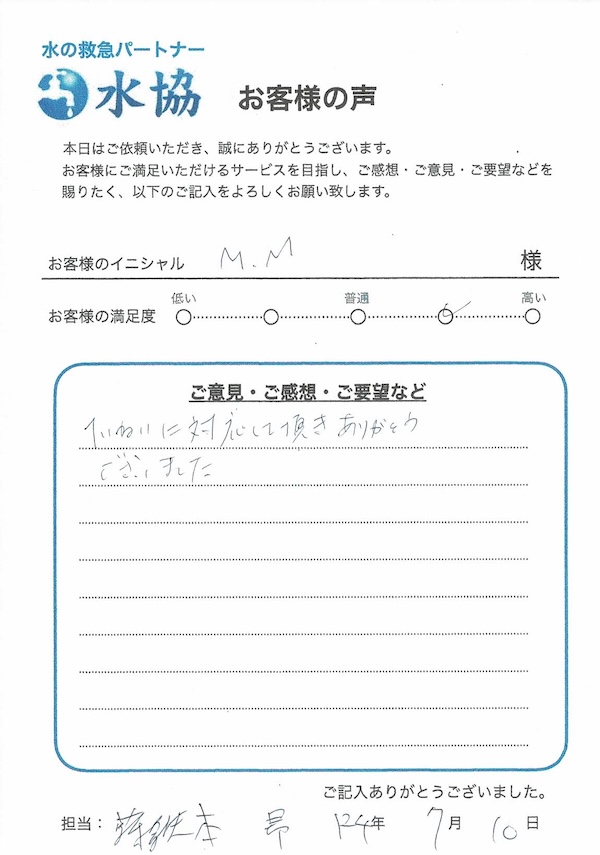 水の救急パートナー
水協 お客様の声
本日はご依頼いただき、誠にありがとうございます。
お客様にご満足いただけるサービスを目指し、ご感想・ご意見・ご要望などを
賜りたく、以下のご記入をよろしくお願い致します。
お客様のイニシャル M.M 様
低い 普通 高い
お客様の満足度
ご意見・ご感想・ご要望など
ていねいに対応して頂きありがとう
ございました
ご記入ありがとうございました。
担当： 本 昴 年 7月 10日